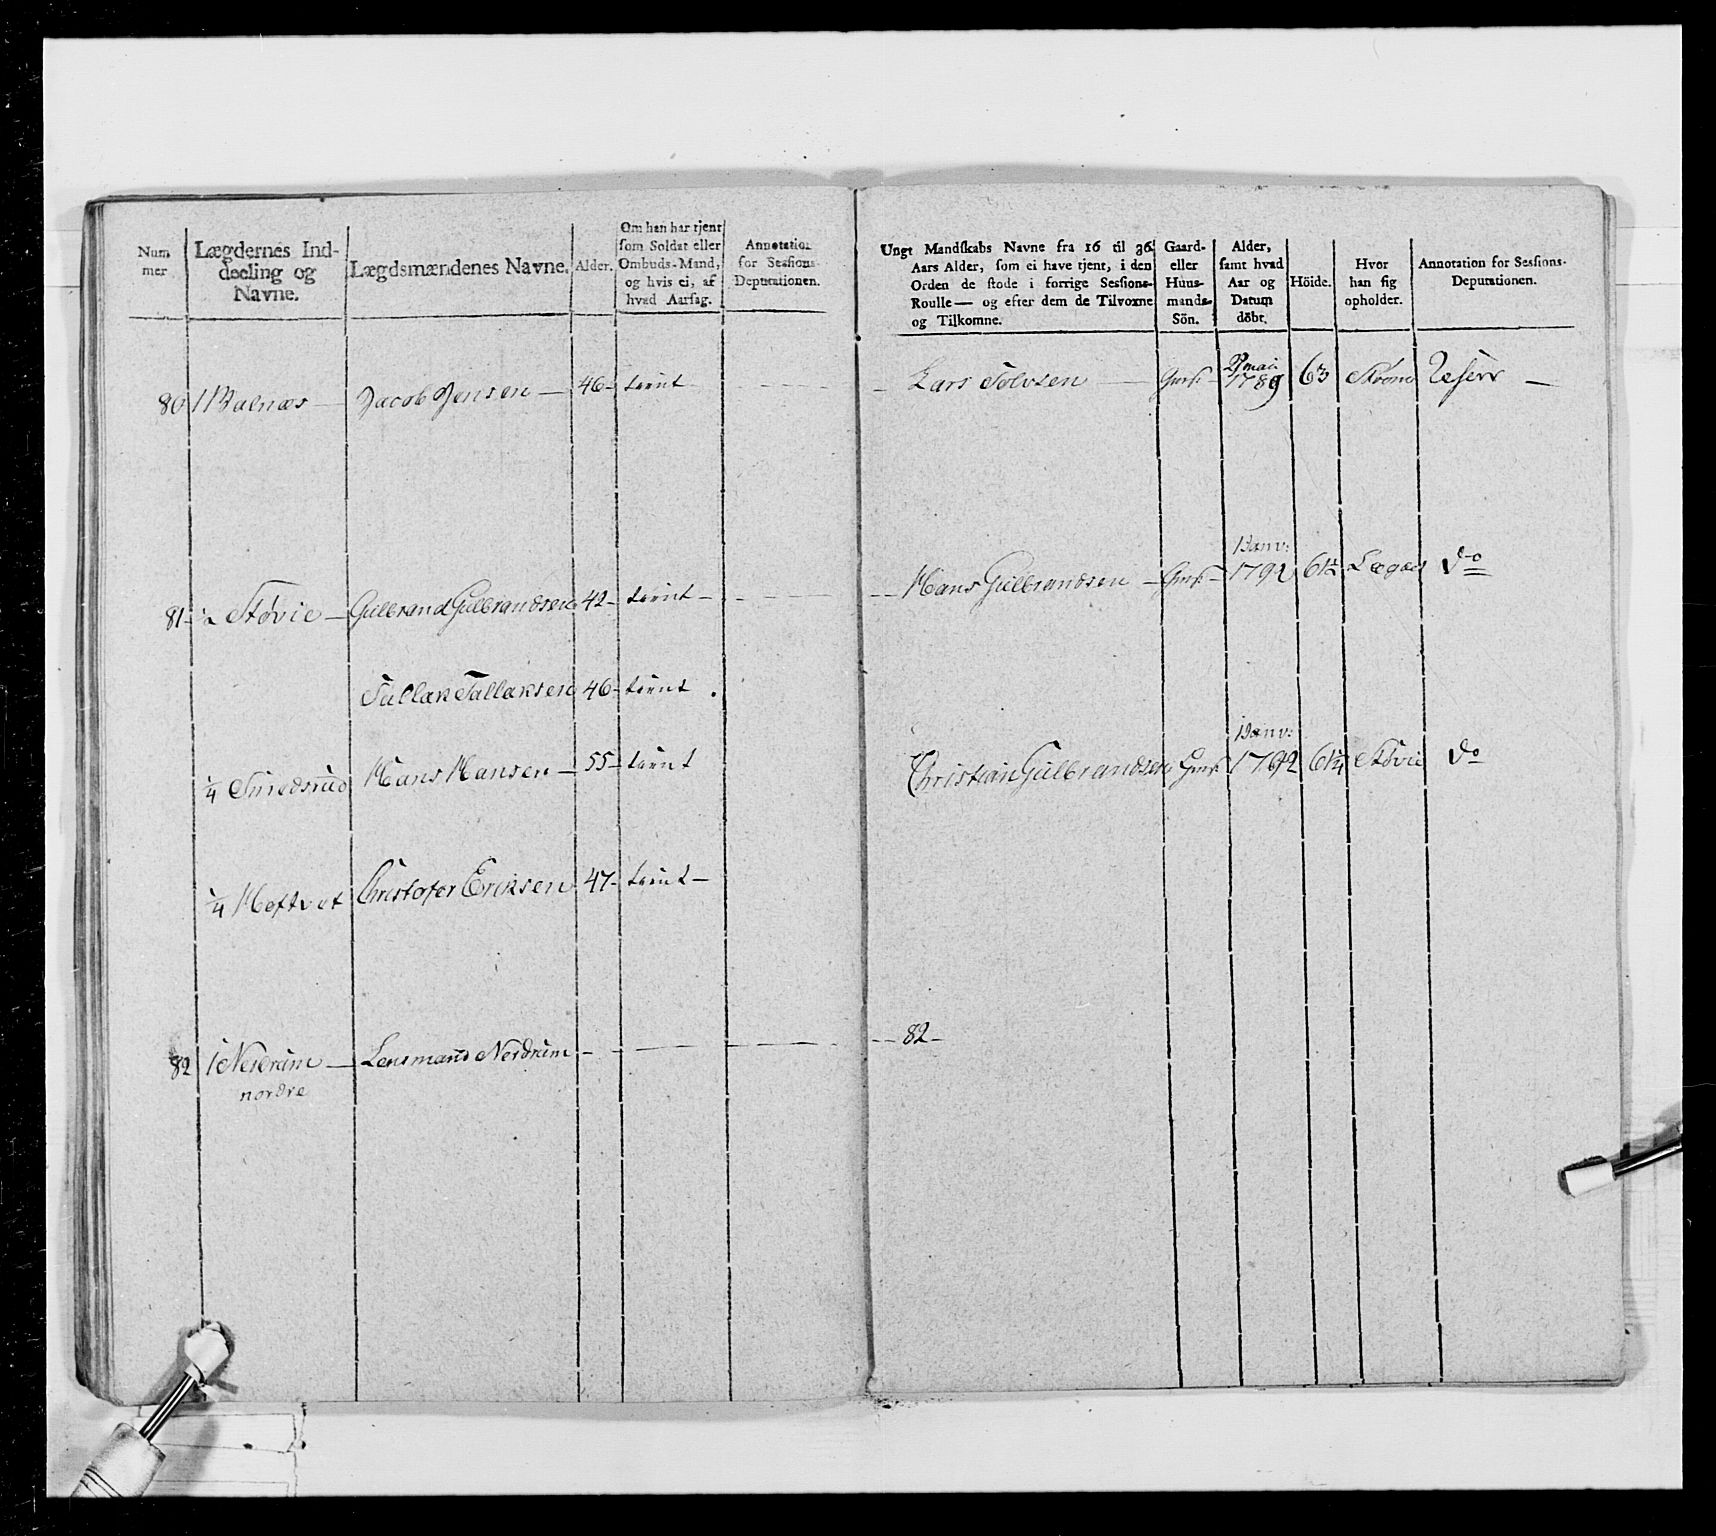 Num
mer
Lægdernes Ind-
deeling og
Navne.
Lægdsmændenes Navne.
Alder.
Om han har tjent
som Soldat eller
Ombuds-Mand,
og hvis ei, af
hvad Aarsag.
Annotation
for Sessions-
Deputationen.
80 1 Balnæs — Jacob Jensen — 46 - tient
81 - ½ Støvie — Gulbrand Gulbrandsen 42 - tient -
Tallak Tallaksen 46 - tient .
¼ Smedsrud Hans Hansen — 55 - tient
¼ Heftvet Christofer Eriksen 47 - tient —
82 1 Nerdrum — Lensmand Nerdrum -
nordre
Ungt Mandskabs Navne fra 16 til 36
Aars Alder, som ei have tjent, i den
Orden de stode i forrige Sessions-
Roulle — og efter dem de Tilvoxne
og Tilkomne.
Gaard-
eller
Huus-
mands-
Sön.
Alder,
samt hvad
Aar og
Datum
döbt.
Höide.
Hvor
han sig
opholder.
Annotation for Sessions-
Deputationen.
mai
Lars Tolvsen — 1789 63 Strøm Reserv —
Janv:
Hans Gulbrandsen — 1792 61½ Lægdet do
Janv:
Christian Gulbrandsen 1792 61¼ Støvie do
82 -